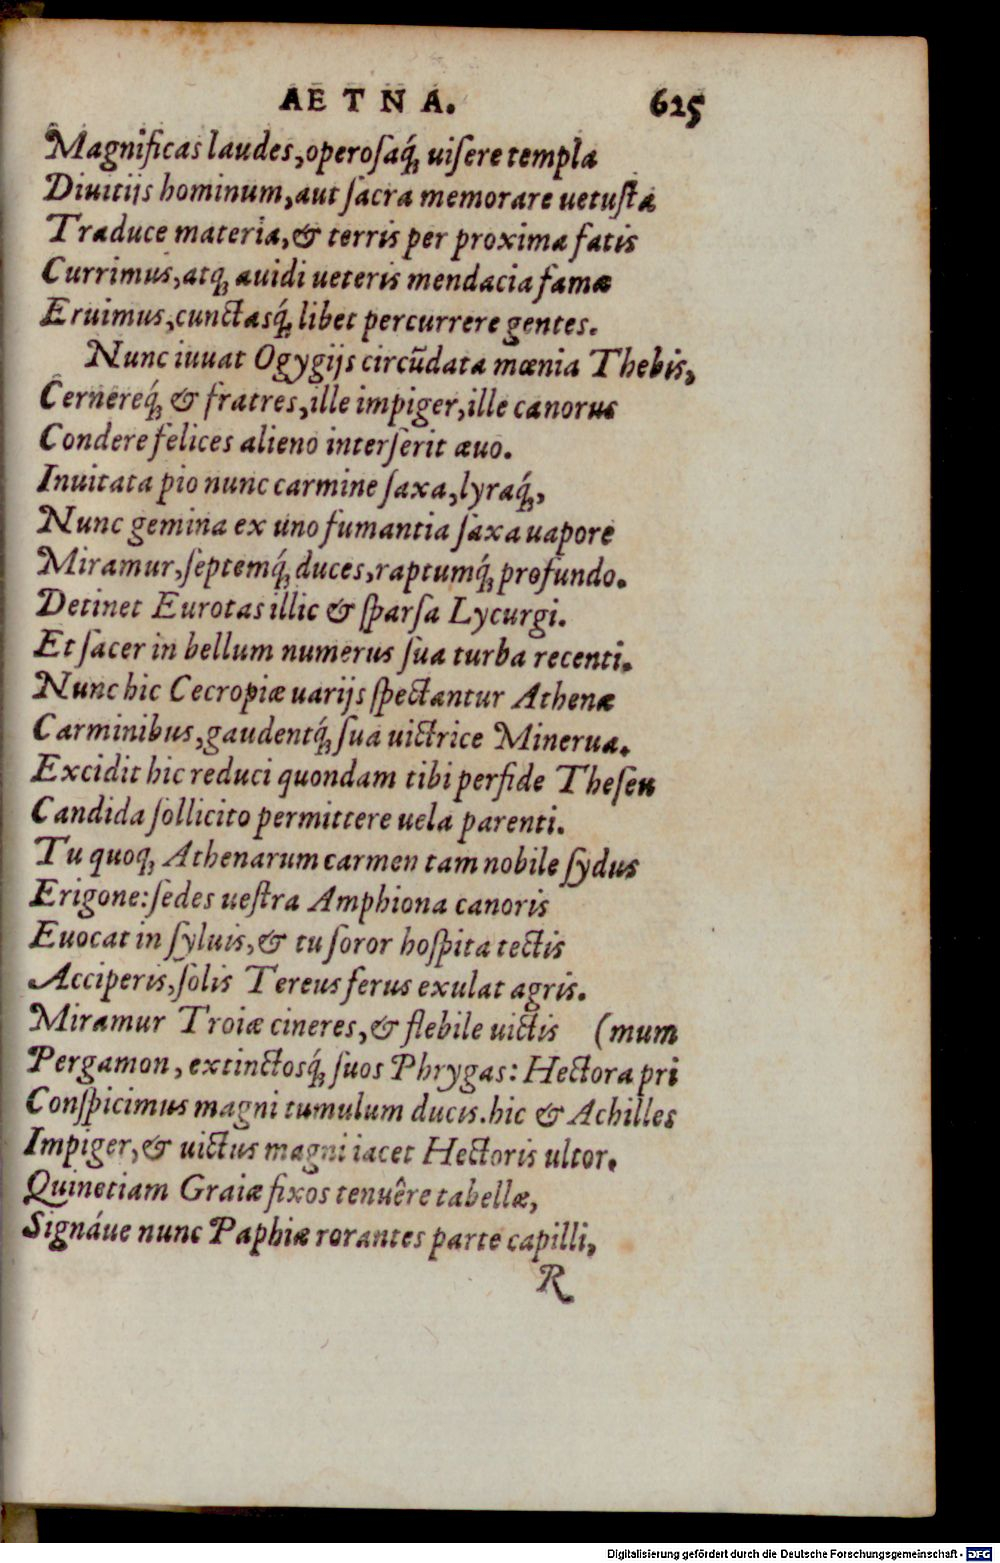 AETNA. 625
Magnificas laudes, operoſaq́; uiſere templa
Diuitijs hominum, aut ſacra memorare uetuſta
Traduce materia, & terris per proxima fatis
Currimus, atq; auidi ueteris mendacia famæ
Eruimus, cunctasq́; libet percurrere gentes.
Nunc iuuat Ogygijs circũdata mœnia Thebis,
Cernereq́; & fratres, ille impiger, ille canorus
Condere felices alieno interſerit æuo.
Inuitata pio nunc carmine ſaxa, lyraq́;,
Nunc gemina ex uno fumantia ſaxa uapore
Miramur, ſeptemq́; duces, raptumq́; profundo.
Detinet Eurotas illic & ſparſa Lycurgi.
Et ſacer in bellum numerus ſua turba recenti.
Nunc hic Cecropiæ uarijs ſpectantur Athenæ
Carminibus, gaudentq́; ſua uictrice Minerua.
Excidit hic reduci quondam tibi perfide Theſeu
Candida ſollicito permittere uela parenti.
Tu quoq; Athenarum carmen tam nobile ſydus
Erigone: ſedes ueſtra Amphiona canoris
Euocat in ſyluis, & tu ſoror hoſpita tectis
Acciperis, ſolis Tereus ferus exulat agris.
Miramur Troiæ cineres, & flebile uictis (mum
Pergamon, extinctosq́; ſuos Phrygas: Hectora pri
Conſpicimus magni tumulum ducis. hic & Achilles
Impiger, & uictus magni iacet Hectoris ultor.
Quinetiam Graiæ fixos tenuêre tabellæ,
Signáue nunc Paphiæ rorantes parte capilli,
R
Digitalisierung gefördert durch die Deutsche Forschungsgemeinschaft - DFG